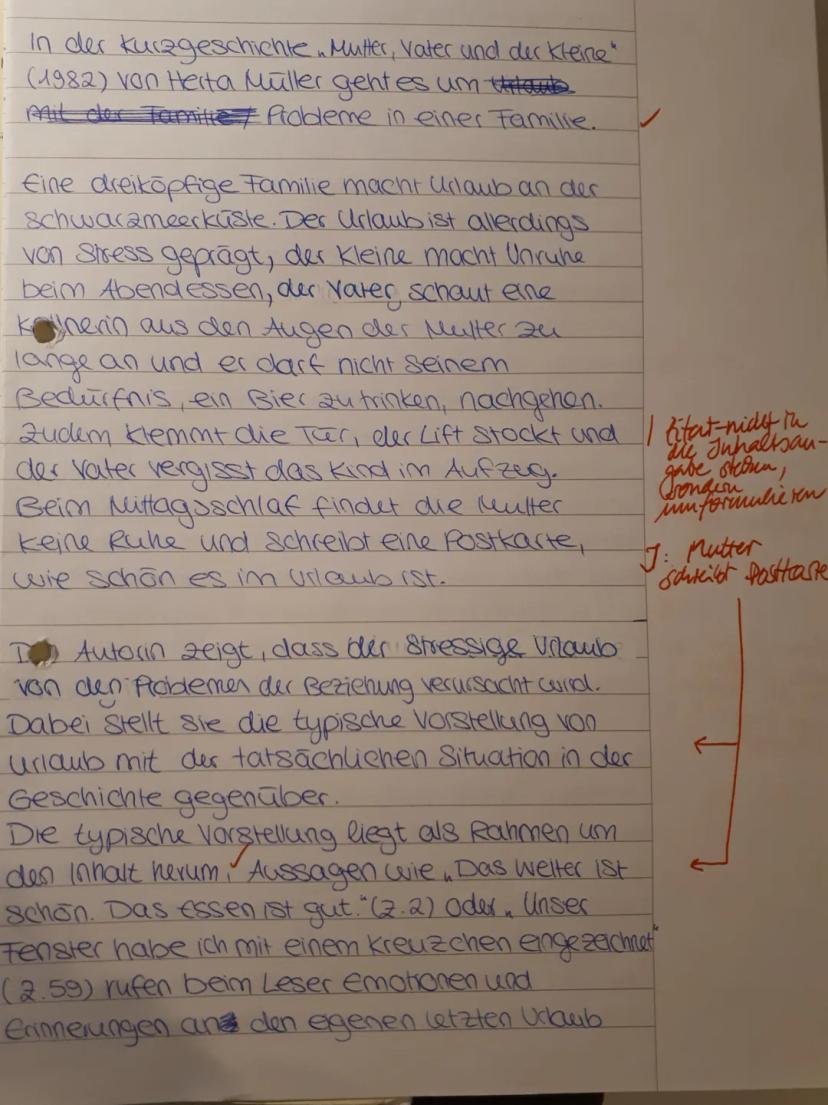 In der Kurzgeschichte „Mutter, Vater und der Kleine"
(1982) von Herta Müller geht es um Urlaub
mit der Familie, Probleme in einer Familie.
Eine dreiköpfige Familie macht Urlaub an der
Schwarzmeerküste. Der Urlaub ist allerdings
von Stress geprägt, der Kleine macht Unruhe
beim Abendessen, der Vater schaut eine
Kellnerin aus den Augen der Mutter zu
lange an und er darf nicht seinem
Bedürfnis, ein Bier zu trinken, nachgehen.
Zudem klemmt die Tür, der Lift stockt und
der Vater vergisst das Kind im Aufzug.
Beim Mittagsschlaf findet die Mutter
keine Ruhe und schreibt eine Postkarte,
wie schön es im Urlaub ist.
I Zitat nicht in
die Inhaltsan-
gabe setzen,
sondern
umformulieren
I: Mutter
schreibt Postkarte
Autorin zeigt, dass der stressige Urlaub
von den Problemen der Beziehung verursacht wird.
Dabei stellt sie die typische Vorstellung von
Urlaub mit der tatsächlichen Situation in der
Geschichte gegenüber.
Die typische Vorstellung liegt als Rahmen um
den Inhalt herum. Aussagen wie „Das Wetter ist
schön. Das Essen ist gut." (Z.2) oder „Unser
Fenster habe ich mit einem Kreuzchen eingezeichnet"
(Z.59) rufen beim Leser Emotionen und
Erinnerungen an den eigenen letzten Urlaub